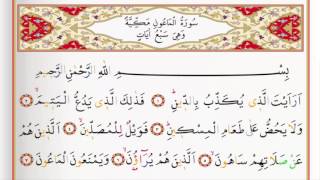 سُورَةُ الْمَاعُونِ مَكِّيَّةٌ
وَهِيَ سَبْعُ اٰيَاتٍ
بِسْمِ اللّٰهِ الرَّحْمٰنِ الرَّحِيمِ
اَرَاَيْتَ الَّذٖى يُكَذِّبُ بِالدّٖينِ ﴿١﴾ فَذٰلِكَ الَّذٖى يَدُعُّ الْيَتٖيمَ ﴿٢﴾
وَلَا يَحُضُّ عَلٰى طَعَامِ الْمِسْكٖينِ ﴿٣﴾ فَوَيْلٌ لِلْمُصَلّٖينَ ﴿٤﴾ اَلَّذٖينَ هُمْ
عَنْ صَلَاتِهِمْ سَاهُونَ ﴿٥﴾ اَلَّذٖينَ هُمْ يُرَٓاؤُ۫نَ ﴿٦﴾ وَيَمْنَعُونَ الْمَاعُونَ ﴿٧﴾